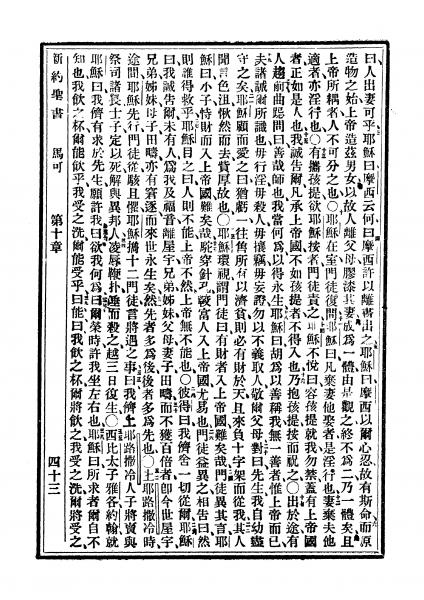 曰人出妻可乎耶穌曰摩西云何曰摩西許以離書出之耶穌曰摩西以爾心忍故有斯命而原
造物之始上帝造茲男女以故人離父母膠漆其妻成爲一體由是觀之終不爲二乃一體矣且
上帝所耦者人不可分之也○耶穌在室門徒復問耶穌曰凡棄妻他娶者是淫行也妻棄夫他
適者亦淫行也○有攜孩提欲耶穌按者門徒責之耶穌不悅曰容孩提就我勿禁蓋有上帝國
者正如是人也我誠告爾凡承上帝國不如孩提者不得入也乃抱孩提按而祝之○出於途有
人趨前曲跽問曰善哉師也我當何爲以得永生耶穌曰胡爲以善稱我無一善者惟上帝而已
夫諸誡爾所識也毋行淫毋殺人毋攘竊毋妄證勿以不義取人敬爾父母對曰先生我自幼盡
守之矣耶穌顧而愛之曰猶虧一往售所有以濟貧則必有財於天且來負十字架而從我其人
聞言色沮愀然而去貨厚故也○耶穌環視謂門徒曰有財者入上帝國難矣哉門徒異其言耶
穌曰小子恃財而入上帝國難矣哉駝穿針孔較富人入上帝國尤易也門徒益異之相告曰然
則誰得救乎耶穌目之曰人則不能上帝不然上帝無不能也○彼得曰我儕舍一切從爾耶穌
曰我誠告爾未有人爲我及福音離屋宇兄弟姊妹父母妻子田疇而不獲百倍者即今世屋宇
兄弟姊妹母子田疇亦有窘逐而來世永生矣然先者多爲後後者多爲先也○上耶路撒冷時
途間耶穌先行門徒從駭且懼耶穌攜十二門徒言將遇之事曰我儕上耶路撒冷人子將賣與
祭司諸長士子定以死解與異邦人凌辱鞭扑唾而殺之越三日復生○西比太子雅各約翰就
耶穌曰我儕有求於先生願許我曰欲我何爲曰爾榮時許我坐左右也耶穌曰所求者爾自不
知也我飲之杯爾能飲乎我受之洗爾能受乎曰能曰我飲之杯爾將飲之我受之洗爾將受之
新約聖書 馬可 第十章 四十三